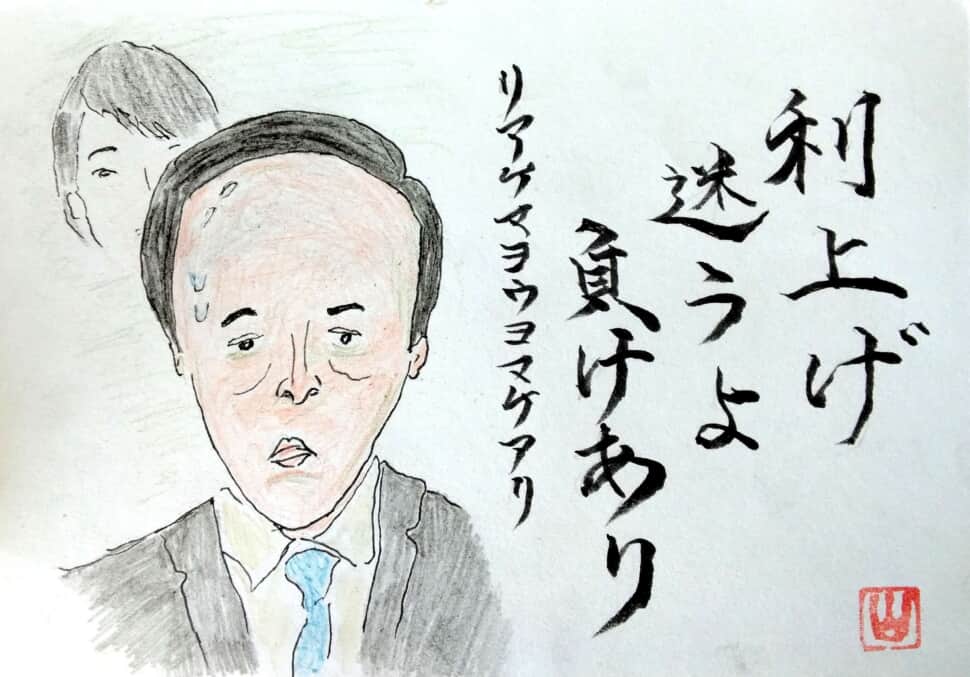 利上げ
迷うよ
負けあり
リアケマヨウヨマケアリ